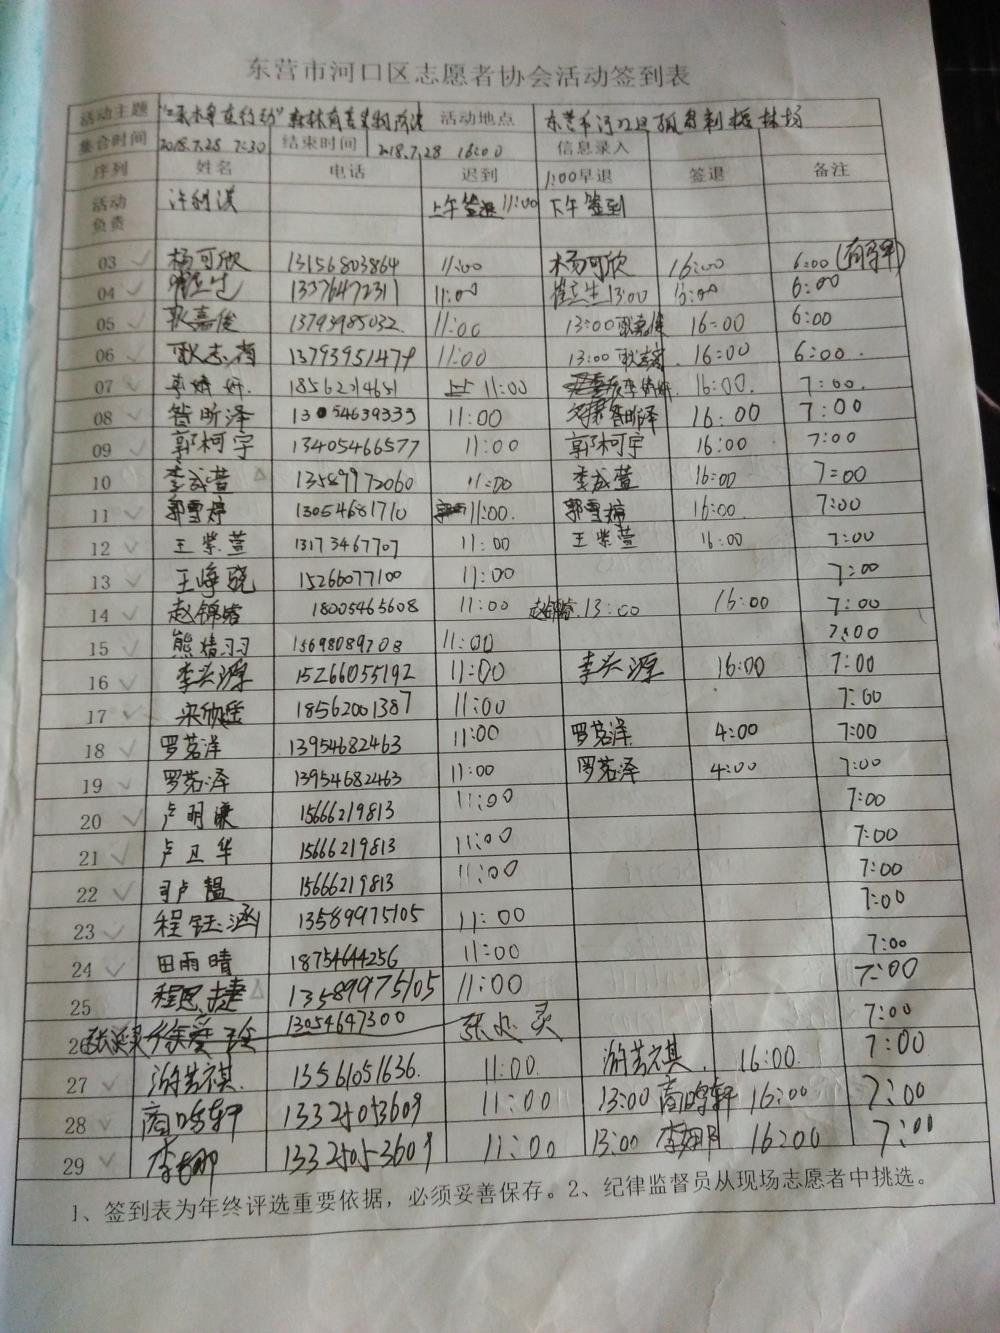 东营市河口区志愿者协会活动签到表
活动主题 活动地点 东营市河口区孤岛刺槐林场
集合时间 2018.7.28 7:30 结束时间 2018.7.28 16:00 信息录入
序列 姓名 电话 迟到 1:00早退 签退 备注
活动负责 许利滨 上午签退11:00 下午签到
03 杨可欣 13156803864 11:00 杨可欣 16:00 6:00
04 崔立生 13376472311 11:00 崔立生 13:00 16:00 6:00
05 耿嘉俊 13793985032 11:00 13:00 耿嘉俊 16:00 6:00
06 耿志岗 13793951479 11:00 13:00 16:00 6:00
07 李婧妍 18562214651 11:00 李婧妍 16:00 7:00
08 昝昕泽 13054639333 11:00 昝昕泽 16:00 7:00
09 郭柯宇 13405466577 11:00 郭柯宇 16:00 7:00
10 李成萱 13589972060 11:00 李成萱 16:00 7:00
11 郭雪婷 13054681710 11:00 郭雪婷 16:00 7:00
12 王紫萱 13173467707 11:00 王紫萱 16:00 7:00
13 王峥骁 15266077100 11:00 7:00
14 赵锦 18005465608 11:00 赵锦 13:00 16:00 7:00
15 熊婧羽 15698089208 11:00 7:00
16 李头源 15266055192 11:00 李头源 16:00 7:00
17 宋欣 18562001387 11:00 7:00
18 罗茗洋 13954682463 11:00 罗茗洋 4:00 7:00
19 罗茗泽 13954682463 11:00 罗茗泽 4:00 7:00
20 卢明谦 15666219813 11:00 7:00
21 卢卫华 15666219813 11:00 7:00
22 卢韫 15666219813 11:00 7:00
23 程钰涵 13589975105 11:00 7:00
24 田雨晴 18754644256 11:00 7:00
25 程思捷 13589975105 11:00 7:00
26 13054647300 7:00
27 游若祺 13561051636 11:00 游若祺 16:00 7:00
28 商鸣轩 13325053609 11:00 13:00 商鸣轩 16:00 7:00
29 李娜 13325053609 11:00 13:00 李娜 16:00 7:00
1、签到表为年终评选重要依据，必须妥善保存。2、纪律监督员从现场志愿者中挑选。